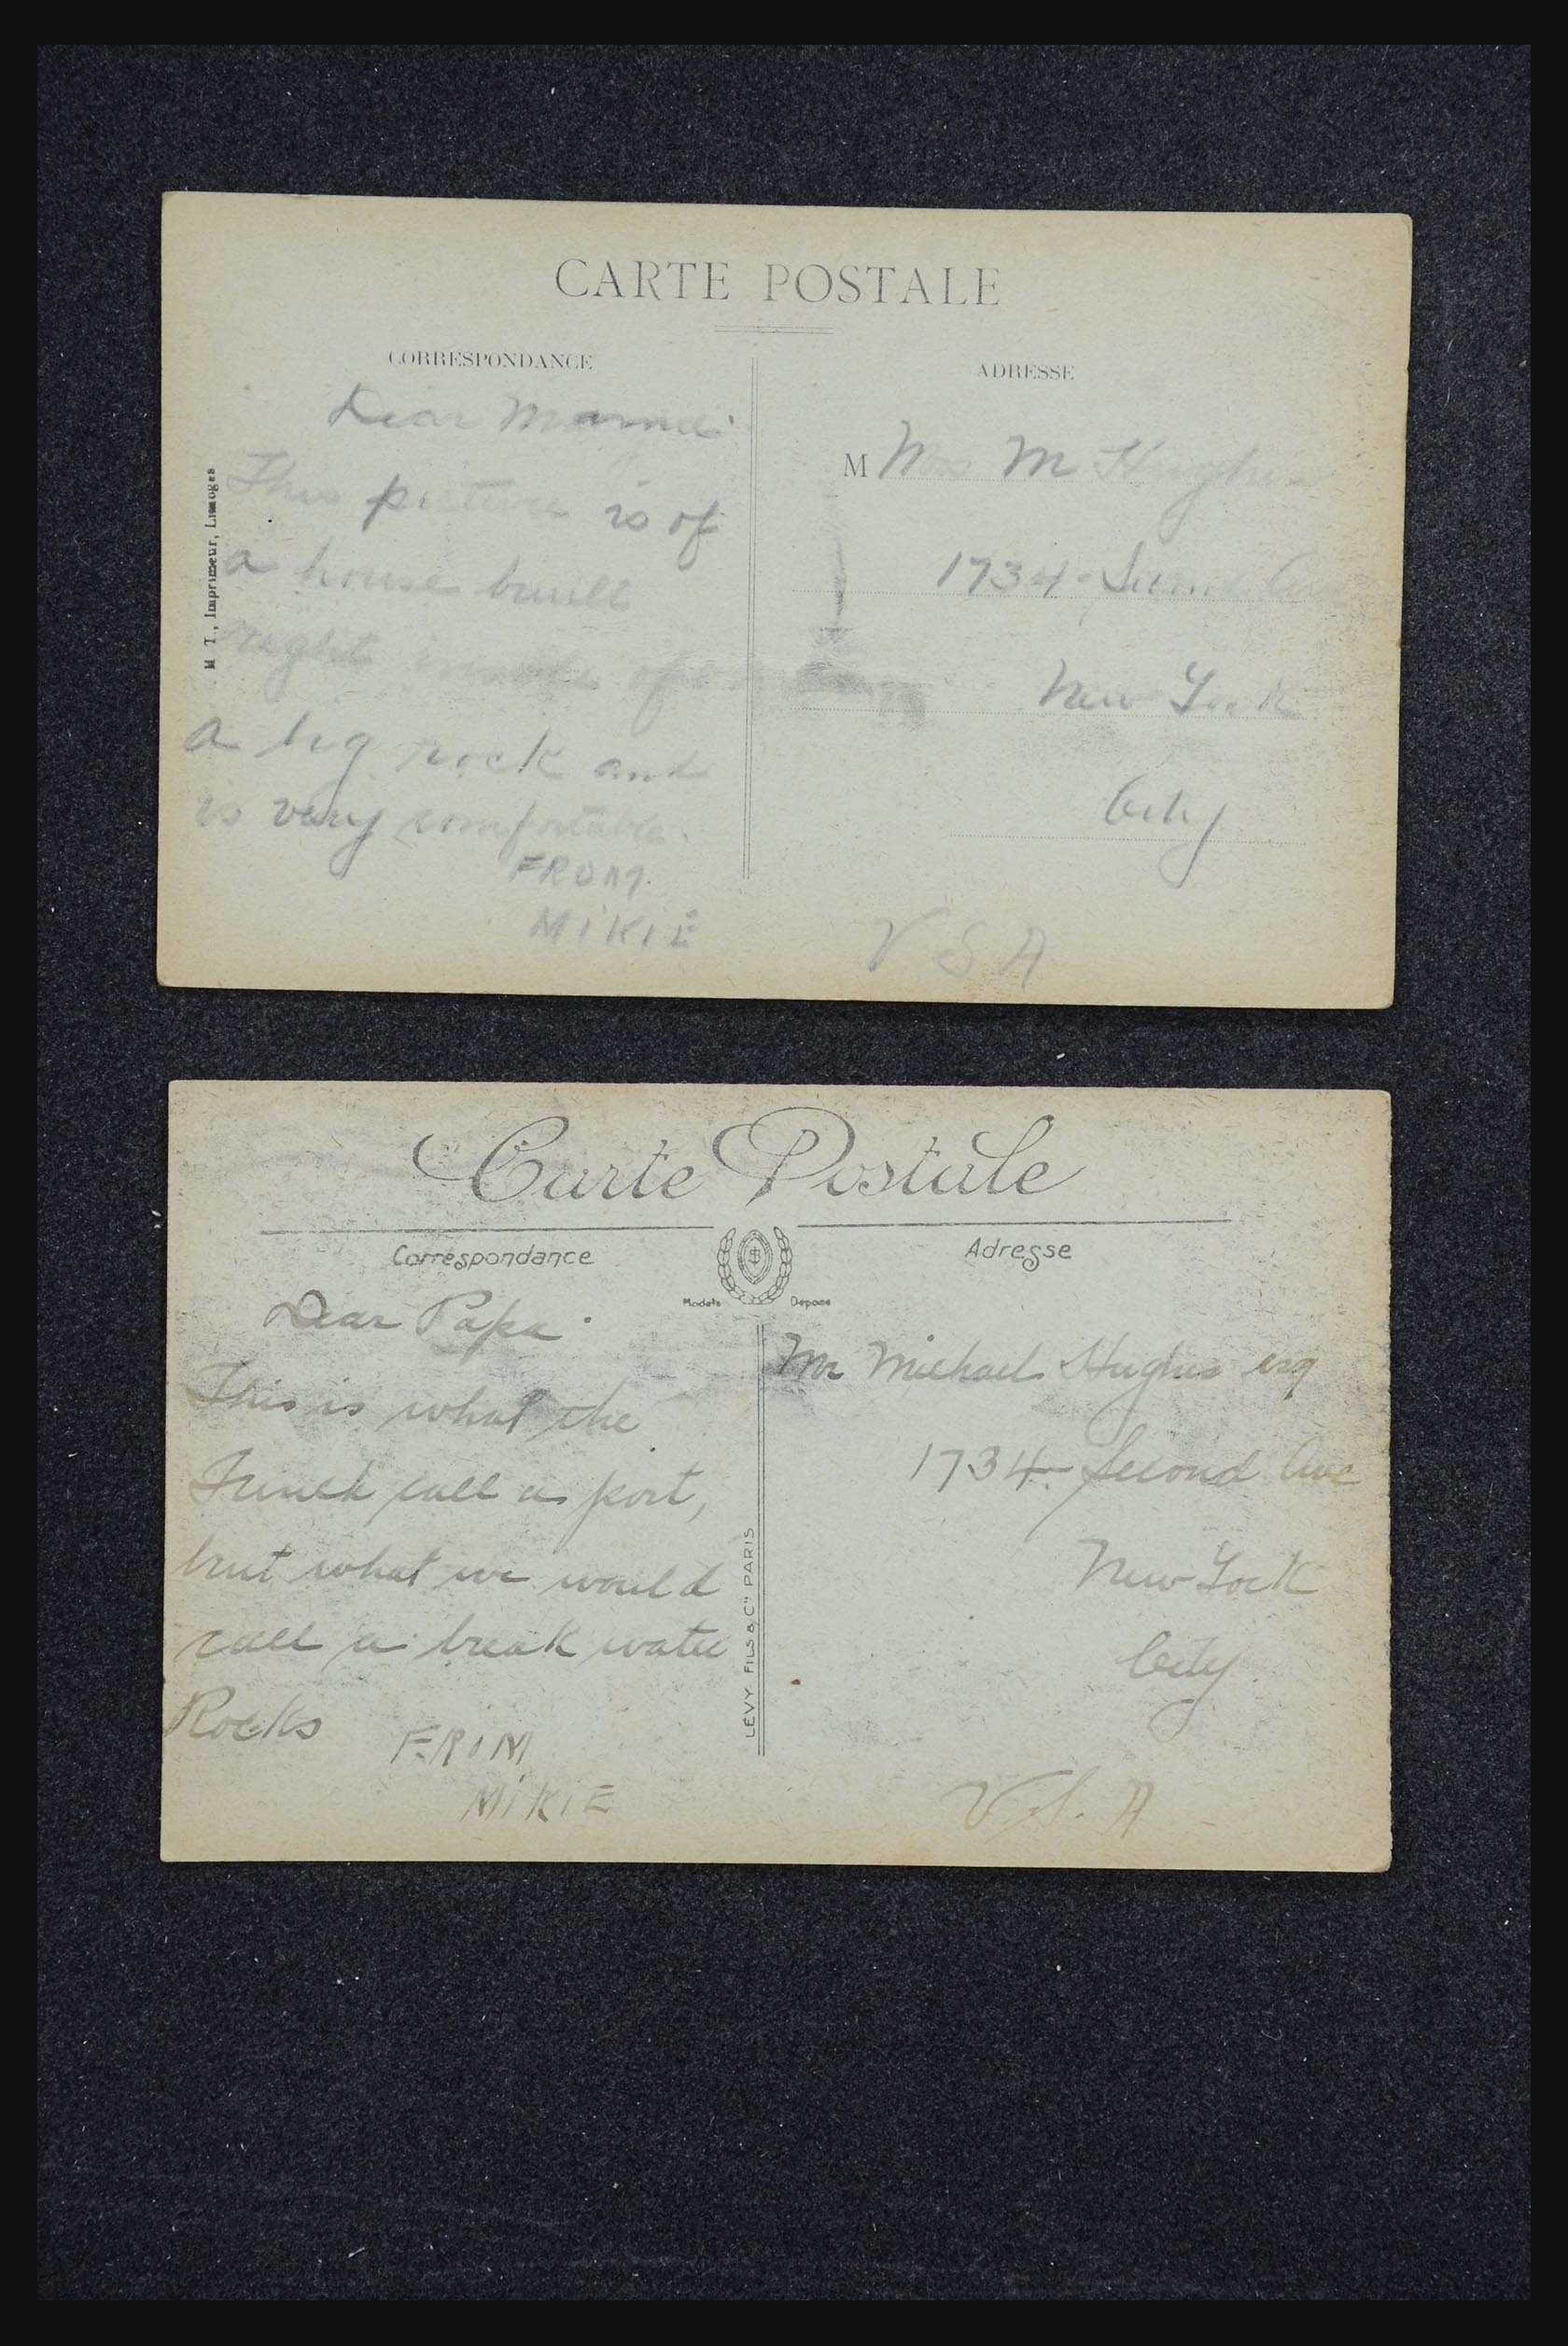 CARTE POSTALE
CORRESPONDANCE
ADRESSE
M. T., Imprimeur, Limoges
Dear Mama
This picture is of
a house built
right inside of
a big rock and
is very comfortable.
FROM
MIKIE
M Mrs M Hughes
1734 - Second Ave
New York
City
USA
Carte Postale
Correspondance
Adresse
Modele Depose
LÉVY FILS & Cie PARIS
Dear Papa
This is what the
French call a port,
but what we would
call a break water
Rocks
FROM
MIKIE
Mr Michael Hughes esq
1734 - Second Ave
New York
City
U.S.A